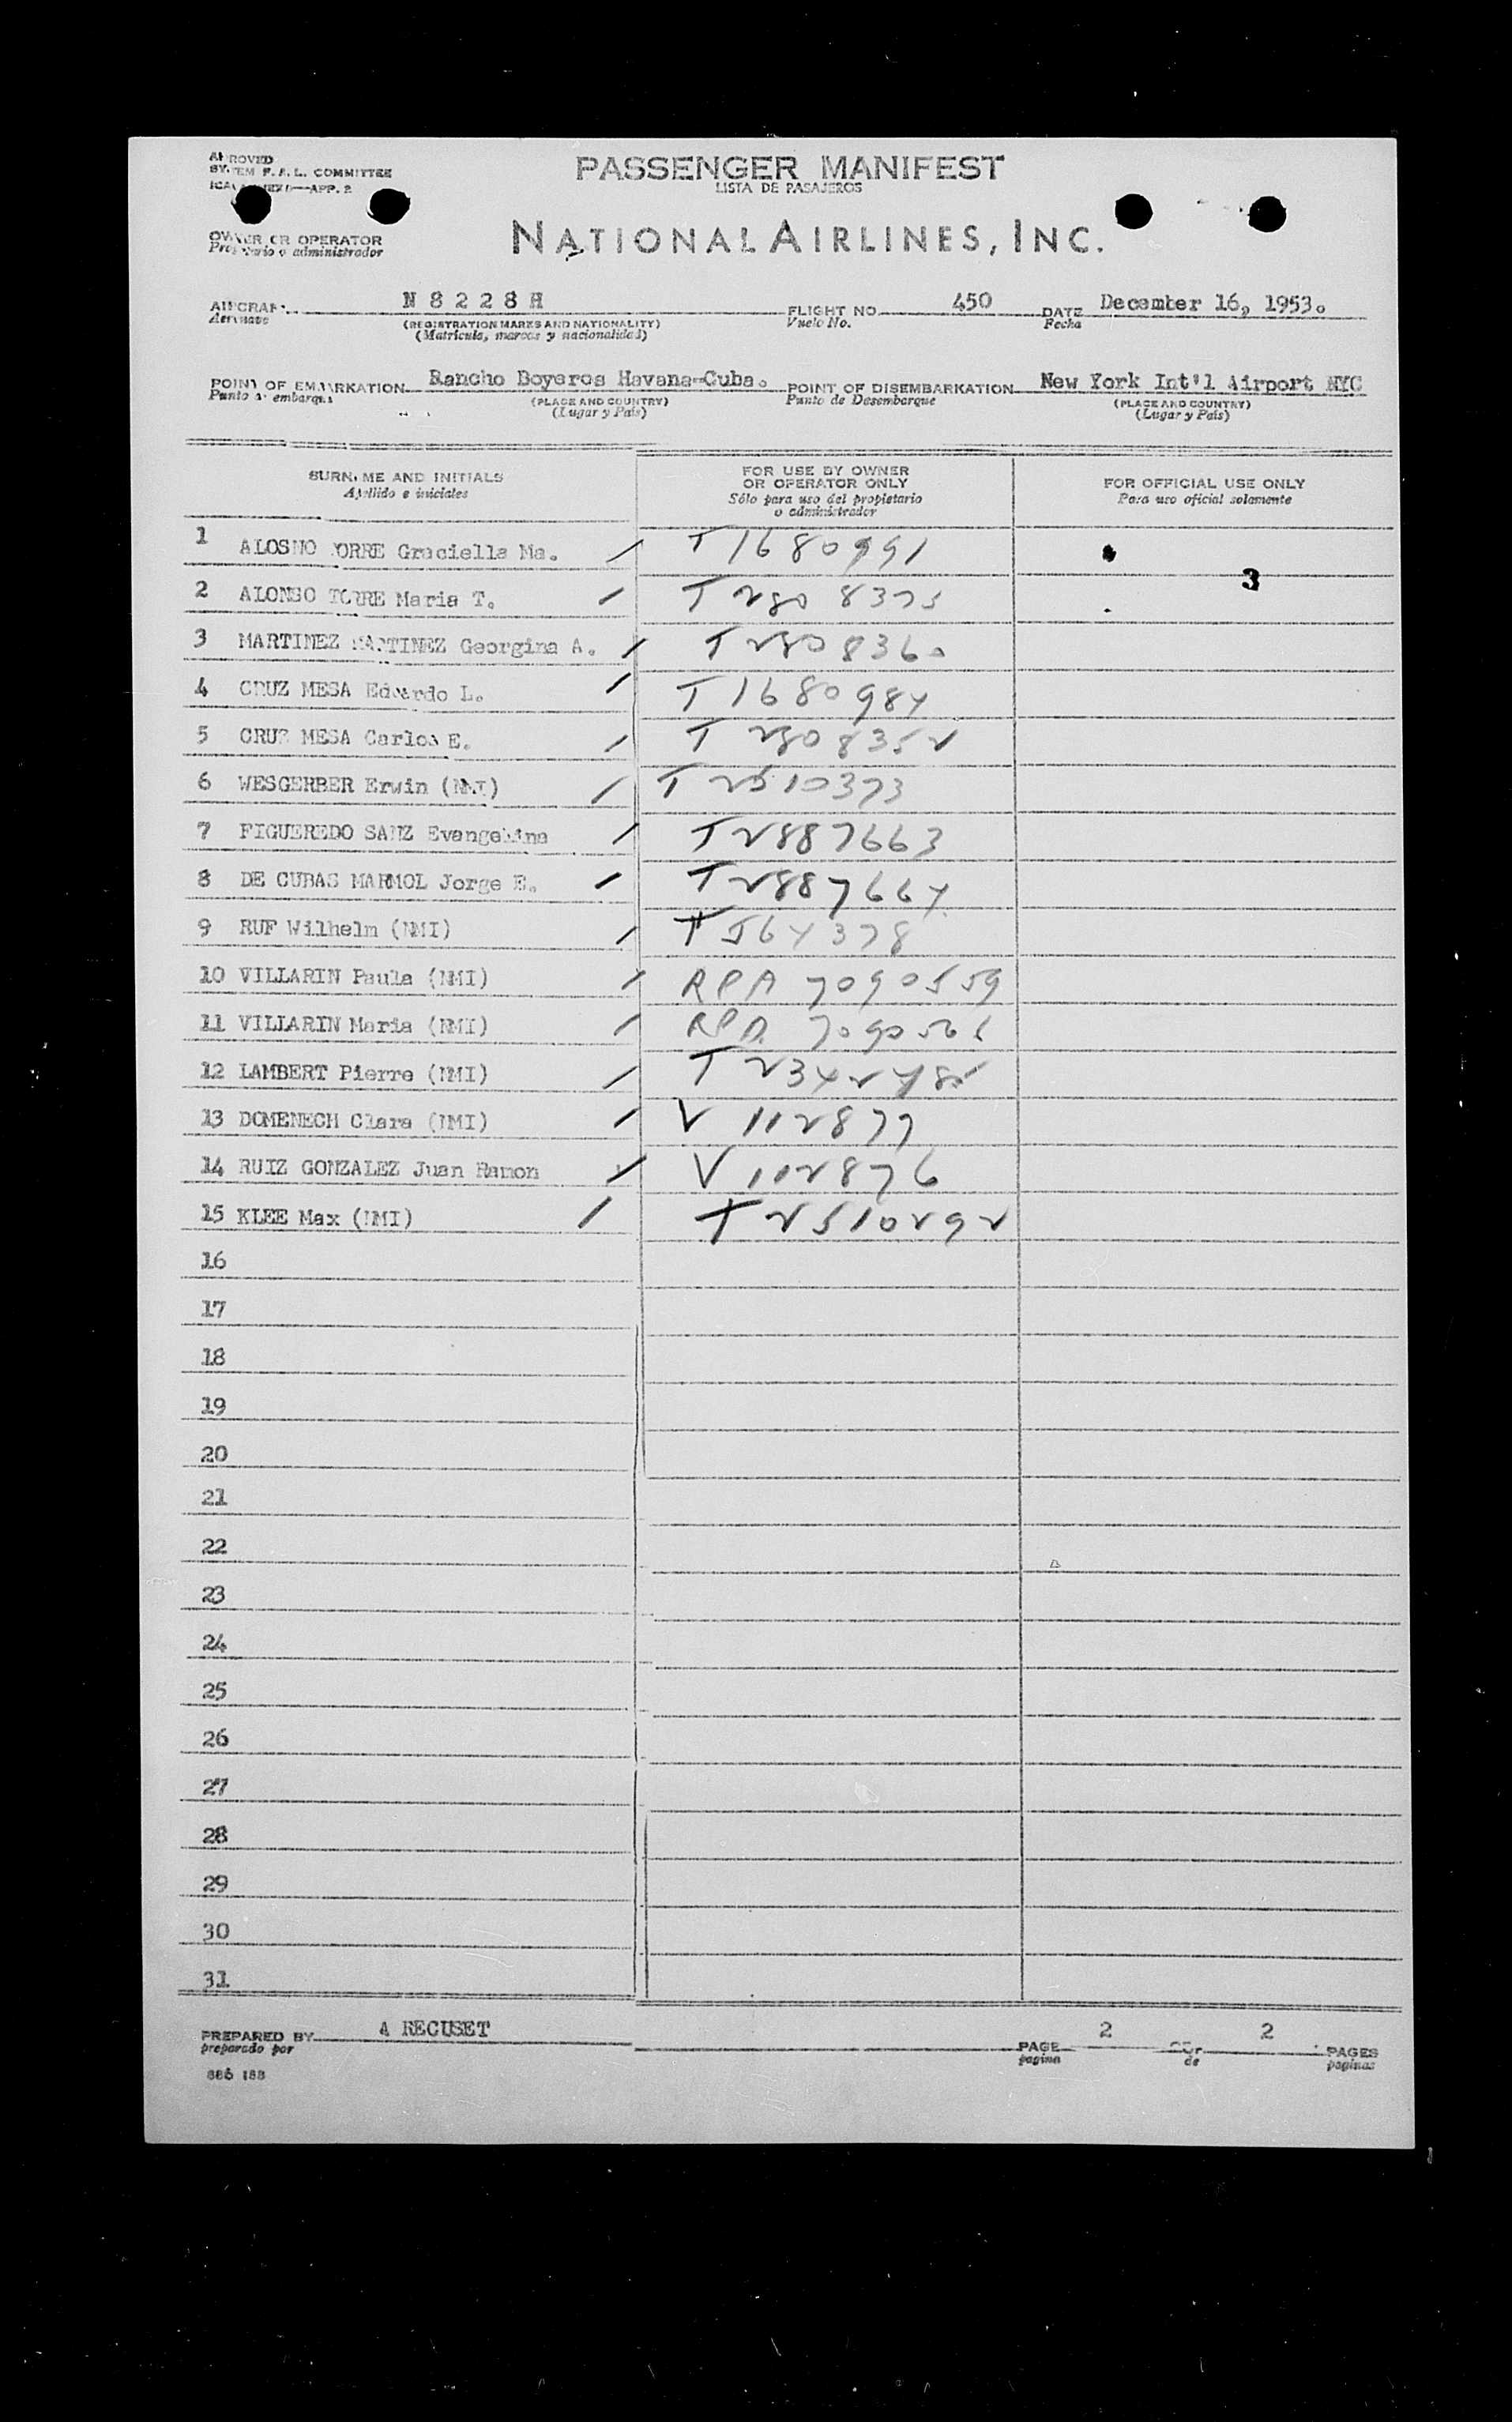 APPROVED
BY FEM F.A.L. COMMITTEE
APP. 2
PASSENGER MANIFEST
LISTA DE PASAJEROS
OWNER OR OPERATOR
Propietario o administrador
NATIONAL AIRLINES, INC.
AIRCRAFT N 8 2 2 8 H FLIGHT NO. 450 DATE December 16, 1953.
Aeronave (REGISTRATION MARKS AND NATIONALITY) Vuelo No. Fecha
(Matricula, marcas y nacionalidad)
POINT OF EMBARKATION Rancho Boyeros Havana-Cuba. POINT OF DISEMBARKATION New York Int'l Airport NYC
Punto de embarque (PLACE AND COUNTRY) Punto de Desembarque (PLACE AND COUNTRY)
(Lugar y País) (Lugar y País)
SURNAME AND INITIALS FOR USE BY OWNER OR OPERATOR ONLY FOR OFFICIAL USE ONLY
Apellido e iniciales Sólo para uso del propietario o administrador Para uso oficial solamente
1 ALOSNO TORRE Graciella Ma. T 1680991
2 ALONSO TORRE Maria T. T 2808375 3
3 MARTINEZ MARTINEZ Georgina A. T 2808360
4 CRUZ MESA Eduardo L. T 1680984
5 CRUZ MESA Carlos E. T 2808352
6 WESGERBER Erwin (NMI) T 2510373
7 FIGUEREDO SANZ Evangelina T 2887663
8 DE CUBAS MARMOL Jorge E. T 2887664
9 RUF Wilhelm (NMI) T 564378
10 VILLARIN Paula (NMI) RPA 7090559
11 VILLARIN Maria (NMI) RPA
12 LAMBERT Pierre (NMI) T
13 DOMENECH Clara (NMI) V 112877
14 RUIZ GONZALEZ Juan Ramon V 112876
15 KLEE Max (NMI) T 2510292
16
17
18
19
20
21
22
23
24
25
26
27
28
29
30
31
PREPARED BY A RECUSET PAGE 2 2 PAGES
preparado por pagina de paginas
886 188